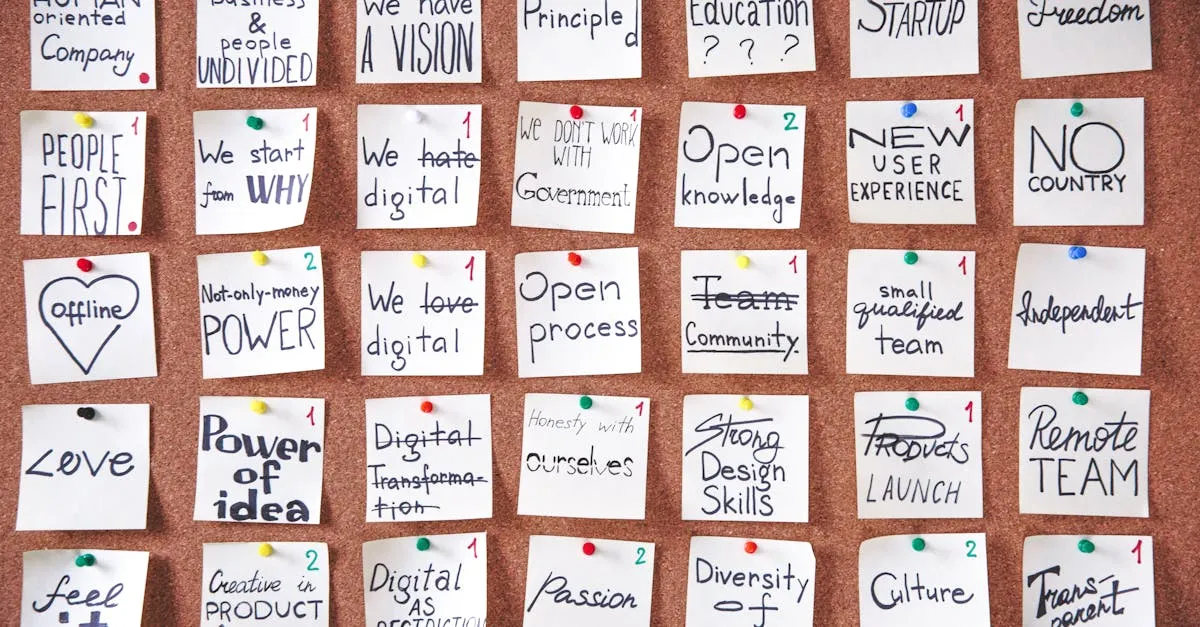 HUMAN
oriented
Company
Business
&
people
UNDIVIDED
We have
A VISION
Principled
Education
? ? ?
STARTUP
Freedom
1
PEOPLE
FIRST
1
We start
from WHY
1
We hate
digital
1
We DON'T WORK
WITH
Government
2
Open
knowledge
1
NEW
USER
EXPERIENCE
NO
COUNTRY
offline
2
Not-only-money
POWER
1
We love
digital
Open
process
1
Team
Community.
1
small
qualified
team
Independent
Love
1
Power
of
idea
Digital
Transforma-
tion
1
Honesty with
ourselves
Strong
Design
Skills
1
Products
LAUNCH
Remote
TEAM
feel
it
2
Creative in
PRODUCT
1
Digital
AS
RESTRICTION
2
Passion
Diversity
of
2
Culture
1
Trans-
parent